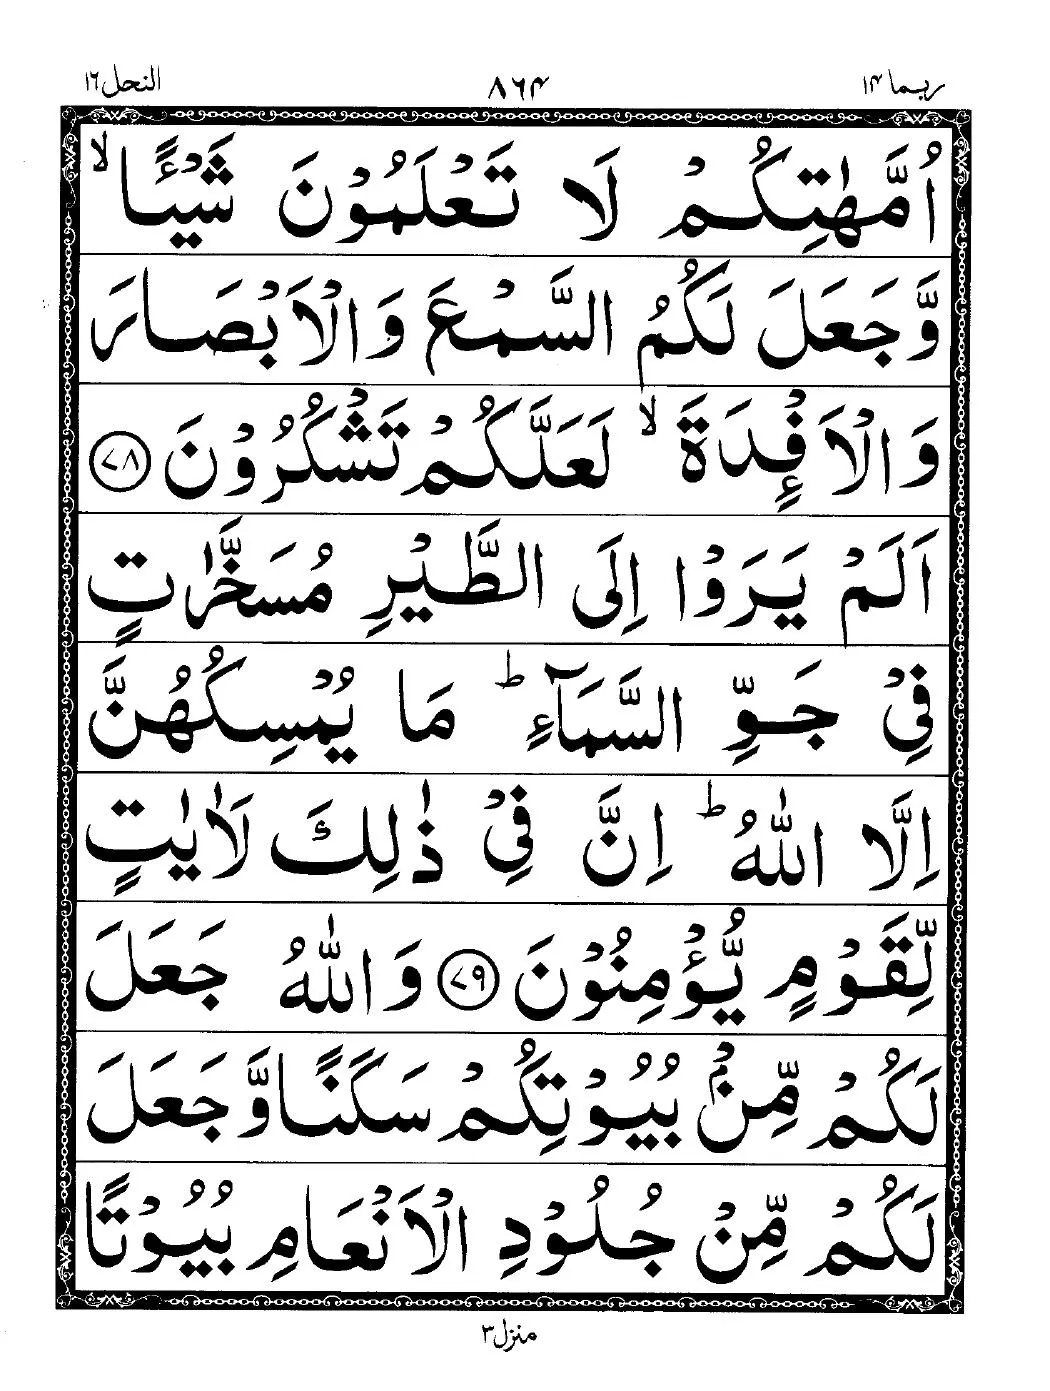 ربما ۱۴ ۸۶۴ النحل ۱۶
اُمَّهٰتِكُمْ لَا تَعْلَمُوْنَ شَيْـًٔا ۙ
وَّجَعَلَ لَكُمُ السَّمْعَ وَالْاَبْصَارَ
وَالْاَفْـِٕدَةَ ۙ لَعَلَّكُمْ تَشْكُرُوْنَ ﴿۷۸﴾
اَلَمْ يَرَوْا اِلَى الطَّيْرِ مُسَخَّرٰتٍ
فِيْ جَوِّ السَّمَآءِ ؕ مَا يُمْسِكُهُنَّ
اِلَّا اللّٰهُ ؕ اِنَّ فِيْ ذٰلِكَ لَاٰيٰتٍ
لِّقَوْمٍ يُّؤْمِنُوْنَ ﴿۷۹﴾ وَاللّٰهُ جَعَلَ
لَكُمْ مِّنْۢ بُيُوْتِكُمْ سَكَنًا وَّجَعَلَ
لَكُمْ مِّنْ جُلُوْدِ الْاَنْعَامِ بُيُوْتًا
منزل ۳